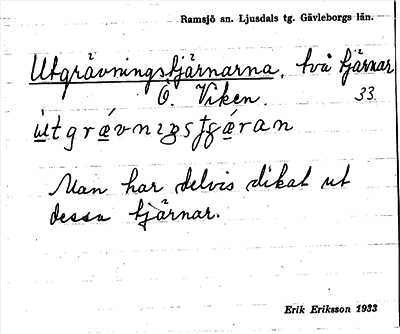 Ramsjö sn. Ljusdals tg. Gävleborgs län.
Utgrävningstjärnarna, två tjärnar
Ö. Viken. 33
Man har delvis dikat ut
dessa tjärnar.
Erik Eriksson 1933